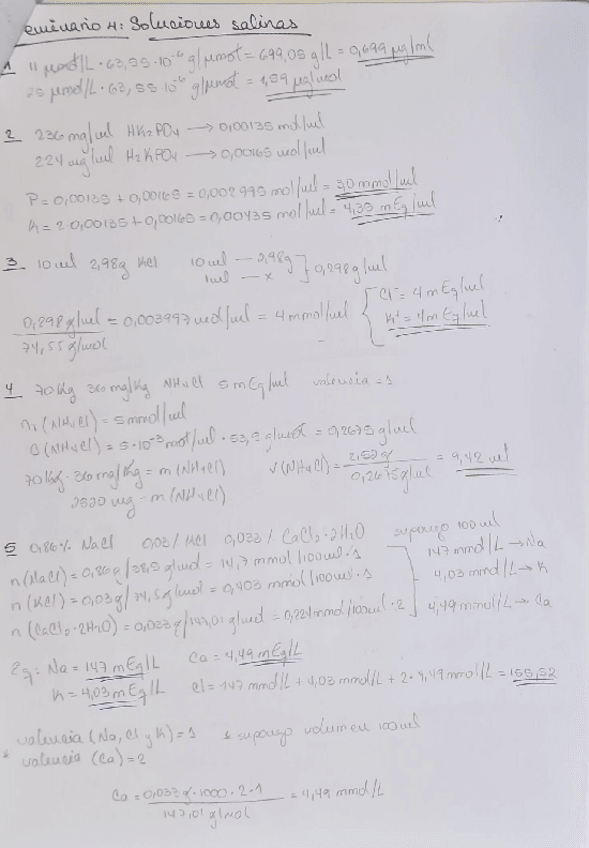 eminario 4: Soluciones salinas
1 11 μmol/L · 63,55·10⁻⁶ g/μmol = 699,05 g/L = 0,699 μg/ml
25 μmol/L · 63,55·10⁻⁶ g/μmol = 1,59 μg/mol
2 236 mg/ml HK₂PO₄ → 0,00135 mol/ml
224 mg/ml H₂KPO₄ → 0,00165 mol/ml
P = 0,00135 + 0,00165 = 0,002995 mol/ml = 3,0 mmol/ml
K = 2·0,00135 + 0,00165 = 0,00435 mol/ml = 4,35 mEq/ml
3 10 ml 2,98g KCl 10 ml — 2,98g } 0,298 g/ml
1ml — x
0,298 g/ml / 74,55 g/mol = 0,003997 mol/ml = 4 mmol/ml { Cl⁻ = 4 mEq/ml
K⁺ = 4 mEq/ml
4 70 Kg 360 mg/Kg NH₄Cl 5 mEq/ml valencia = 1
n (NH₄Cl) = 5 mmol/ml
(NH₄Cl) = 5·10⁻³ mol/ml · 53,5 g/mol = 0,2675 g/ml
70 Kg · 36 mg/Kg = m (NH₄Cl) V(NH₄Cl) = 2,52 g / 0,2675 g/ml = 9,42 ml
2520 mg = m (NH₄Cl)
5 0,86% NaCl 0,03% KCl 0,033% CaCl₂·2H₂O supongo 100 ml
n (NaCl) = 0,86g / 58,5 g/mol = 14,7 mmol/100ml · 1 147 mmol/L → Na
n (KCl) = 0,03g / 74,5 g/mol = 0,403 mmol/100ml · 1 4,03 mmol/L → K
n (CaCl₂·2H₂O) = 0,033g / 147,01 g/mol = 0,224 mmol/100ml · 2 4,49 mmol/L → Ca
Eq: Na = 147 mEq/L Ca = 4,49 mEq/L
K = 4,03 mEq/L Cl = 147 mmol/L + 4,03 mmol/L + 2·4,49 mmol/L = 155,52
valencia (Na, Cl y K) = 1 supongo volumen 100 ml
valencia (Ca) = 2
Ca = 0,033 g·1000·2·1 / 147,01 g/mol = 4,49 mmol/L